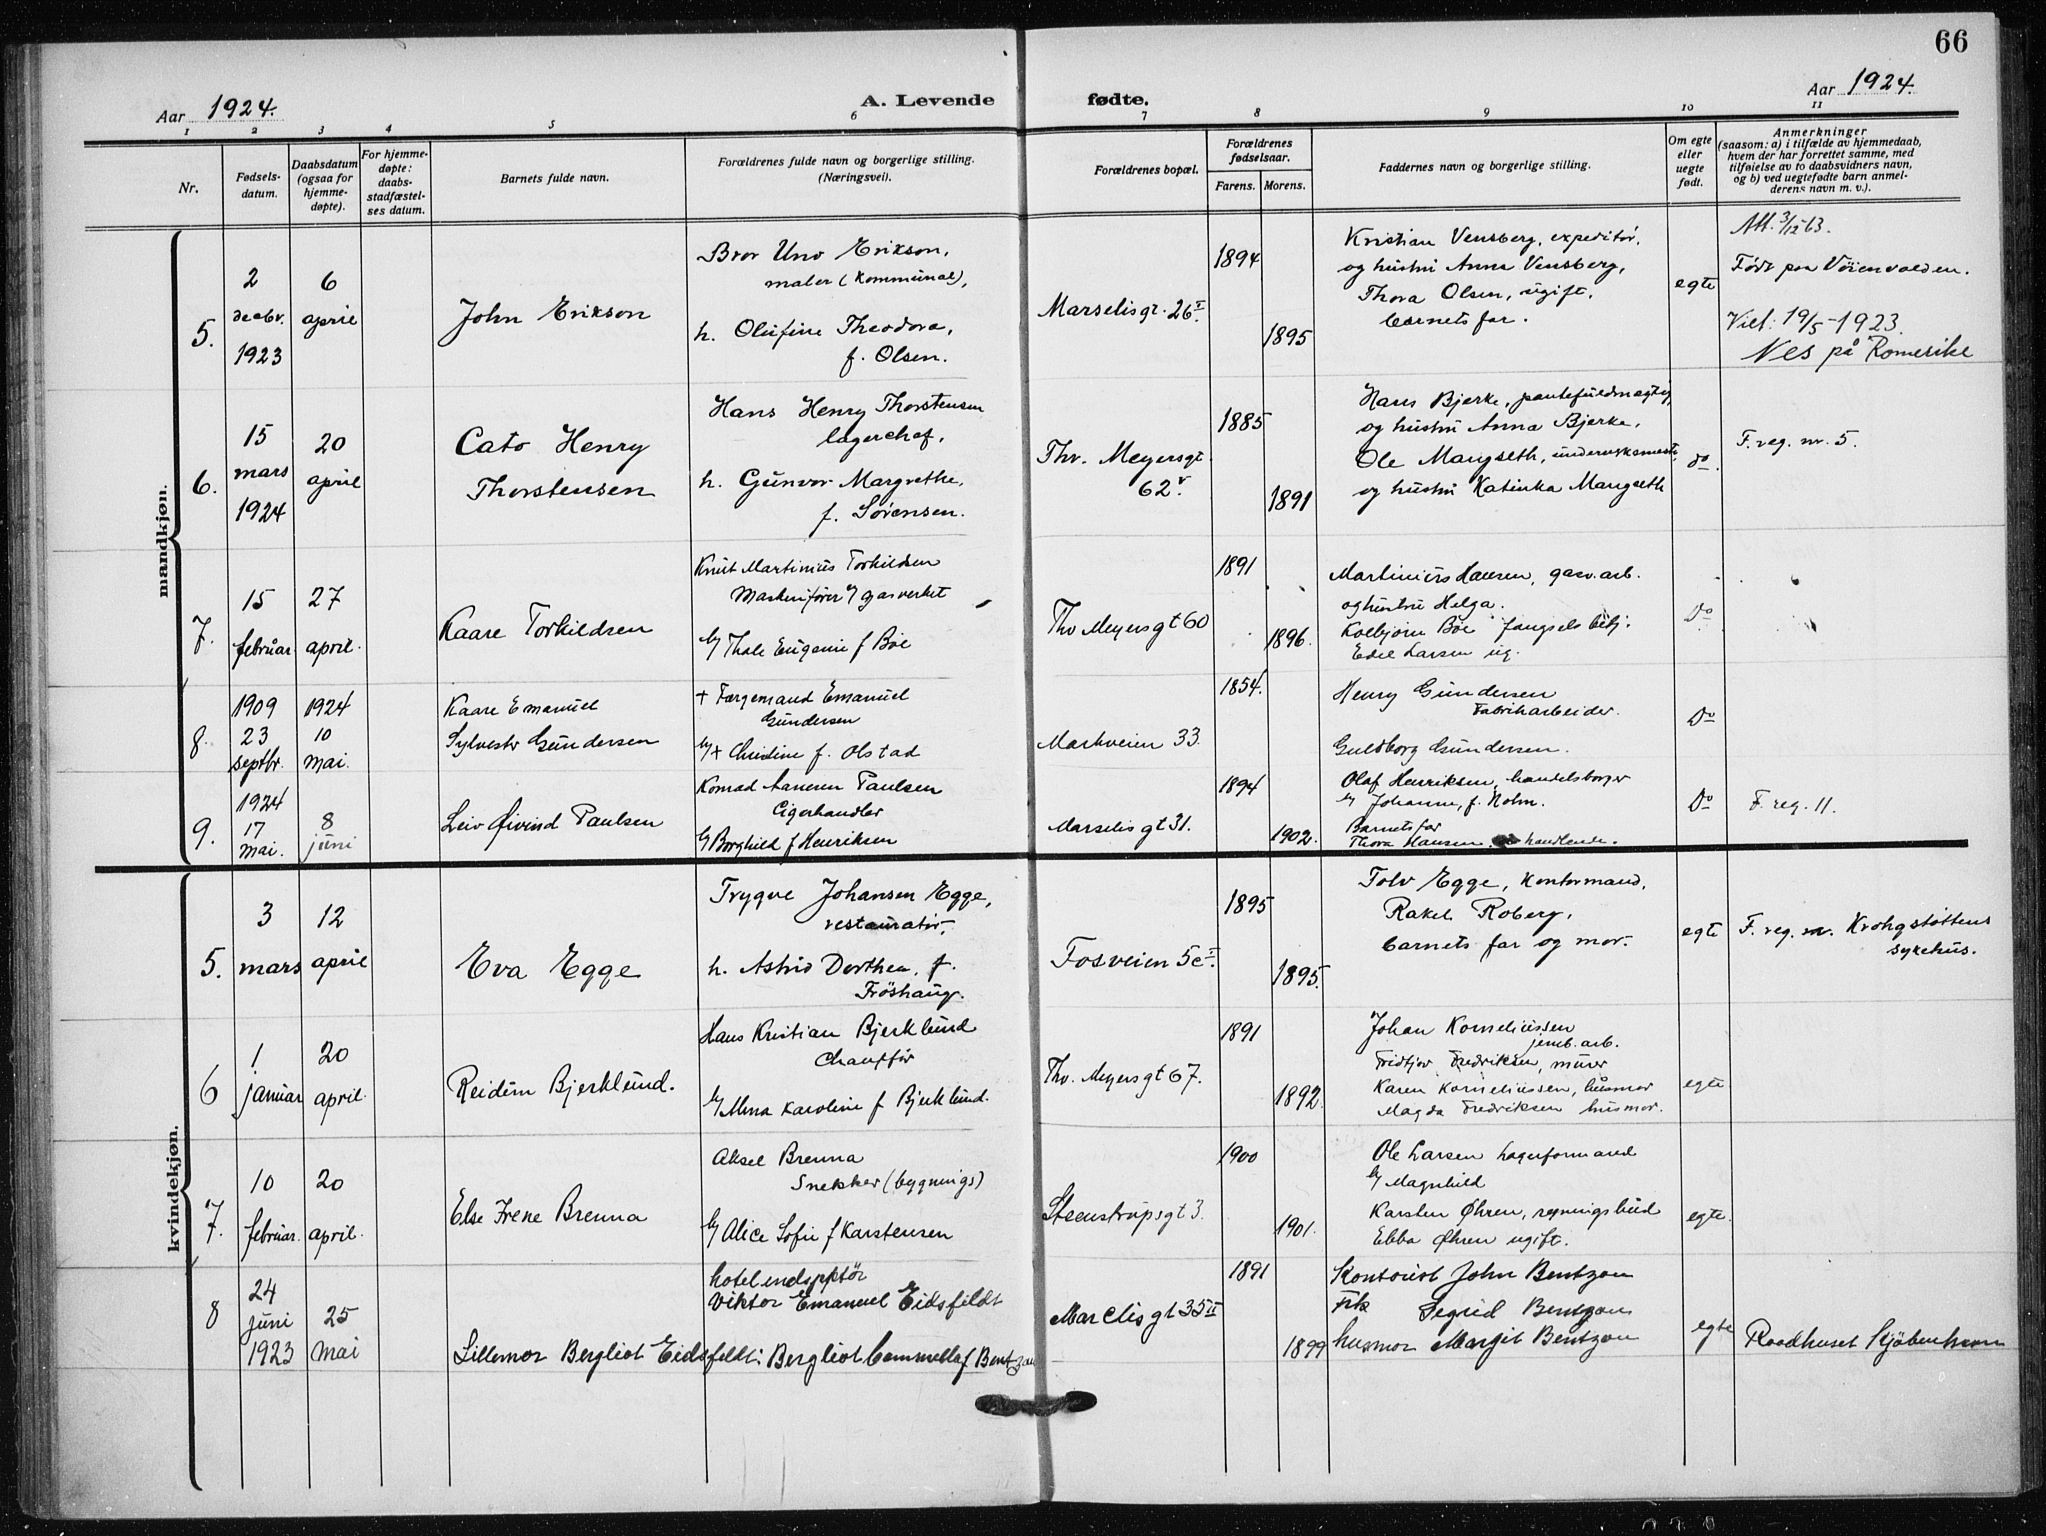 66
Aar 1924.
A. Levende fødte.
Aar 1924.
1 2 3 4 5 6 7 8 9 10 11
Nr.
Fødsels-
datum.
Daabsdatum
(ogsaa for
hjemme-
døpte).
For hjemme-
døpte:
daabs-
stadfæstel-
ses datum.
Barnets fulde navn.
Forældrenes fulde navn og borgerlige stilling.
(Næringsvei).
Forældrenes bopæl.
Forældrenes
fødselsaar.
Farens. Morens.
Faddernes navn og borgerlige stilling.
Om egte
eller
uegte
født.
Anmerkninger
(saasom: a) i tilfælde av hjemmedaab,
hvem der har forrettet samme, med
tilføielse av to daabsvidners navn,
og b) ved uegtefødte barn anmel-
derens navn m. v.).
mandkjøn.
5.
2
decbr.
1923
6
april
John Erikson
Bror Uno Erikson,
maler (kommunal),
h. Olufine Theodora,
f. Olsen.
Marselisgt. 26 I.
1894
1895
Kristian Vensberg, expeditør,
og hustru Anna Vensberg,
Thora Olsen, ugift.
barnets far.
egte
Att. 3/12 63.
Født paa Vöienvolden.
Viet: 19/5-1923.
Nes på Romerike
6.
15
mars
1924
20
april
Cato Henry
Thorstensen
Hans Henry Thorstensen
lagerchef,
h. Gunvor Margrethe,
f. Sörensen.
Thv. Meyersgt
62 V.
1885
1891
Hans Bjerke, pantefuldmægtig,
og hustru Anna Bjerke,
Ole Mangseth,
og hustru Katinka Mangseth
do.
F. reg. nr. 5.
7.
15
februar
27
april.
Kaare Torkildsen
Knut Martinius Torkildsen
Maskinfører v/ gasverket
h/ Thale Eugenie f Böe
Thv Meyersgt 60
1891
1896.
Martinius Hansen, gasv. arb.
og hustru Helga.
Kolbjørn Böe fængselsbetj.
Edel Larsen ug.
Do
8.
1909
23
septbr.
1924
10
mai.
Kaare Emanuel
Sylvester Gundersen
+ Færgemand Emanuel
Gundersen
h/+ Christine f. Olstad
Markveien 33.
1854.
Henry Gundersen
Fabrikarbeider.
Guldborg Gundersen.
Do
9.
1924
17
mai.
8
juni
Leiv Øivind Paulsen
Konrad Paulsen
Cigarhandler
h/ Borghild f Henriksen
Marselisgt 31.
1894
1902.
Olaf Henriksen, handelsborger
h/ Johanne, f. Holm.
Barnets far
Thora Hansen, handlende.
Do
F. reg. 11.
kvindekjøn.
5.
3
mars
12
april
Eva Egge
Trygve Johansen Egge,
restauratör,
h. Astrid Dorthea, f.
Fröshaug.
Fosveien 5c I.
1895
1895.
Tolv Egge, kontormand,
Rakel Roberg,
barnets far og mor.
egte
F. reg. nr. Krohgstöttens
sykehus.
6
1
januar
20
april.
Reidun Bjerklund.
Hans Kristian Bjerklund
Chauffør
h/ Anna Karoline f Bjerklund.
Thv. Meyersgt 67.
1891
1892.
Johan Korneliussen
jernb. arb.
Fridtjov Fredriksen, murer
Karen Korneliussen, husmor
Magda Fredriksen husmor.
egte
7.
10
februar.
20
april.
Else Irene Brenna
Aksel Brenna
Snekker (bygnings)
h/ Alice Sofie f Karstensen
Steenstrupsgt 3.
1900
1901.
Ole Larsen lagerformand
h/ Magnhild
Karsten Øhren, regningsbud
Ebba Øhren ugift.
egte.
8
24
juni
1923
25
mai
Lillemor Bergliot Eidsfeldt:
hotelindspktör
Viktor Emanuel Eidsfeldt
Bergliot Cammilla f Bentzon
Marcelisgt 35 II
1891
1899
Kontorist John Bentzon
Frk Sigrid Bentzon
husmor Margit Bentzon
egte
Raadhuset Kjøbenhavn